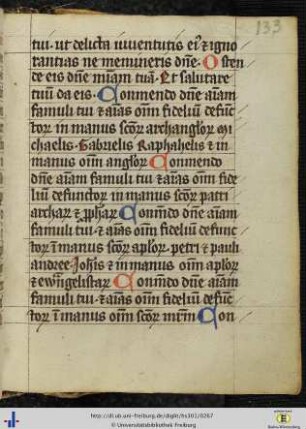 133
tui · ut delicta iuventutis eiꝰ ⁊ igno
rantias ne memineris dn̄e · Osten
de eis dn̄e mīam tuā · Et salutare
tuū da eis · Conmendo dn̄e aīam
famuli tui ⁊ aīas om̄ fideliū defunc
tor in manus sc̄or archanglor mi
chaelis · Gabrielis Raphahelis ⁊ in
manus om̄ anglor Conmendo
dn̄e aīam famuli tui ⁊ aīas om̄ fide
liū defunctor in manus sc̄or patri
archar ⁊ ꝓphar Conm̄do dn̄e aīam
famuli tui · ⁊ aīas om̄ fideliū defunc
tor ī manus sc̄or ap̄lor · petri ⁊ pauli
andree · Joh̄is ⁊ in manus om̄ ap̄lor
⁊ ewn̄gelistar Conm̄do dn̄e aīam
famuli tui · ⁊ aīas om̄ fideliū defunc
tor ī manus om̄ sc̄or mr̄m Con
http://dl.ub.uni-freiburg.de/diglit/hs361/0267
© Universitätsbibliothek Freiburg